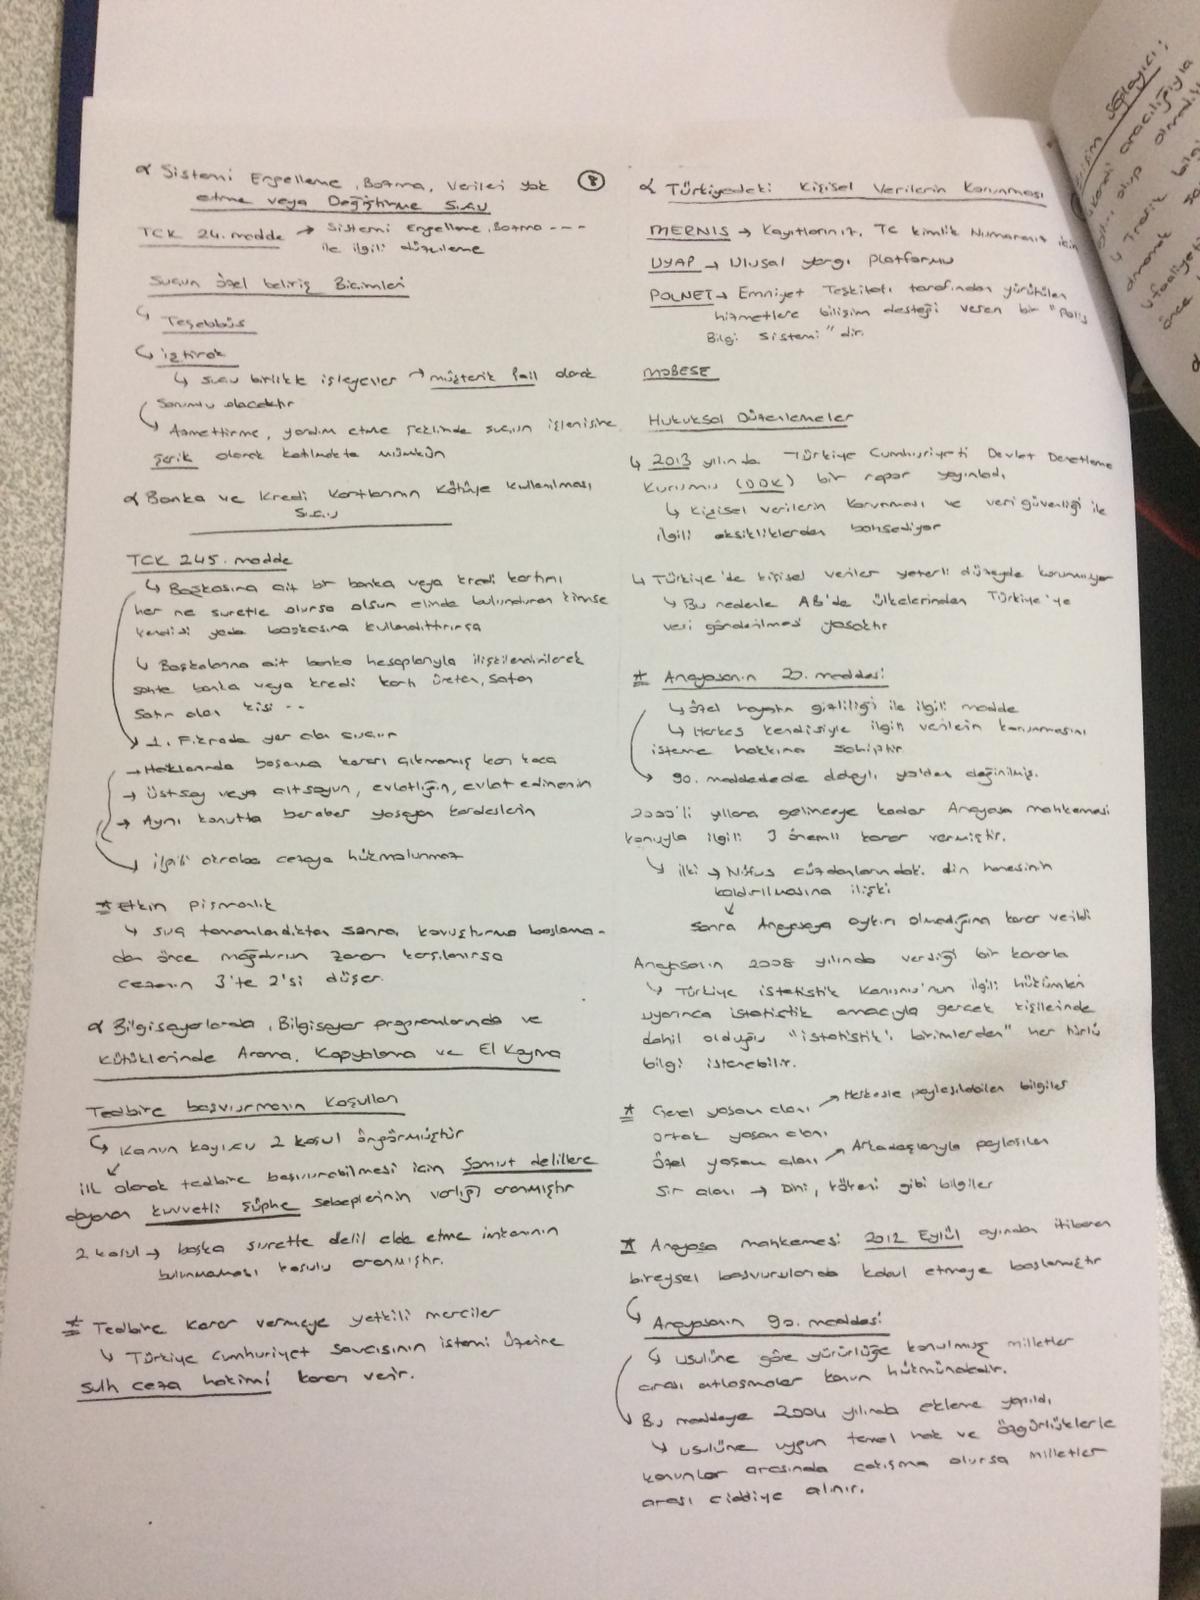 α Sistemi Engelleme, Bozma, Verileri yok
etme veya Değiştirme Sucu
TCK 24. madde → Sistemi Engelleme, Bozma ---
ile ilgili düzenleme
Suçun özel beliriş Bicimleri
↳ Teşebbüs
↳ iştirak
↳ sucu birlikte işleyenler → müşterik fail olarak
sorumlu olacaktır
↳ Azmettirme, yardım etme şeklinde suçun işlenişine
şerik olarak katılmakta mümkün
α Banka ve Kredi Kartlarının Kötüye kullanılması
Sucu
TCK 245. madde
↳ Başkasına ait bir banka veya kredi kartını
her ne suretle olursa olsun elinde bulunduran kimse
kendisi yada başkasına kullandıttırırsa
↳ Başkalarına ait banka hesaplarıyla ilişkilendirilerek
sahte banka veya kredi kartı üreten, satan
satın alan kişi --
↳ 1. Fıkrada yer alan sucun
→ Haklarında boşanma kararı çıkmamış karı koca
→ Üstsoy veya altsoyun, evlatlığın, evlat edinenin
→ Aynı konutta beraber yaşayan kardeşlerin
↳ ilgili akraba cezaya hükmolunmaz
* Etkin pişmanlık
↳ suç tamamlandıktan sonra, kovuşturma başlama-
dan önce mağdurun zararı karşılanırsa
cezanın 3'te 2'si düşer.
α Bilgisayarlarda, Bilgisayar programlarında ve
Kütüklerinde Arama, Kopyalama ve El Koyma
Tedbire başvurmanın Koşulları
↳ Kanun koyucu 2 koşul öngörmüştür
ilk olarak tedbire başvurabilmesi için somut delillere
dayanan kuvvetli şüphe sebeplerinin varlığı aranmıştır
2 kosul → başka surette delil elde etme imkanının
bulunmaması koşulu aranmıştır.
* Tedbire karar vermeye yetkili merciler
↳ Türkiye cumhuriyet savcısının istemi üzerine
sulh ceza hakimi kararı verir.
8
α Türkiyedeki Kişisel Verilerin Korunması
MERNIS → Kayıtlarınız, TC kimlik Numaranız için
UYAP → Ulusal yargı platformu
POLNET → Emniyet Teşkilatı tarafından yürütülen
hizmetlere bilişim desteği veren bir "Polis
Bilgi Sistemi" dir.
MOBESE
Hukuksal Düzenlemeler
↳ 2013 yılında Türkiye Cumhuriyeti Devlet Denetleme
Kurumu (DDK) bir rapor yayınladı,
↳ Kişisel verilerin korunması ve veri güvenliği ile
ilgili eksikliklerden bahsediyor
↳ Türkiye'de kişisel veriler yeterli düzeyde korunmuyor
↳ Bu nedenle AB'de ülkelerinden Türkiye'ye
veri gönderilmesi yasaktır
* Anayasanın 20. maddesi
↳ özel hayatın gizliliği ile ilgili madde
↳ Herkes kendisiyle ilgili verilerin korunmasını
isteme hakkına sahiptir
→ 90. maddedede dolaylı yoldan değinilmiş.
2000'li yıllara gelinceye kadar Anayasa mahkemesi
konuyla ilgili 3 önemli karar vermiştir.
↳ ilki → Nüfus cüzdanlarındaki din hanesinin
kaldırılmasına ilişki
↓
sonra Anayasaya aykırı olmadığına karar verildi
Anayasanın 2008 yılında verdiği bir kararla
↳ Türkiye istatistik Kanunu'nun ilgili hükümleri
uyarınca istatistik amacıyla gerçek kişilerinde
dahil olduğu "istatistiki birimlerden" her türlü
bilgi istenebilir.
* Genel yaşam alanı → Herkesle paylaşılabilen bilgiler
ortak yaşam alanı
özel yaşam alanı → Arkadaşlarıyla paylaşılan
Sır alanı → Dini, kökeni gibi bilgiler
* Anayasa mahkemesi 2012 Eylül ayından itibaren
bireysel başvurularıda kabul etmeye başlamıştır
↳ Anayasanın 90. maddesi
↳ usulüne göre yürürlüğe konulmuş milletler
arası antlaşmalar kanun hükmündedir.
↳ Bu maddeye 2004 yılında ekleme yapıldı,
↳ usulüne uygun temel hak ve özgürlüklerle
kanunlar arasında çakışma olursa milletler
arası ciddiye alınır.